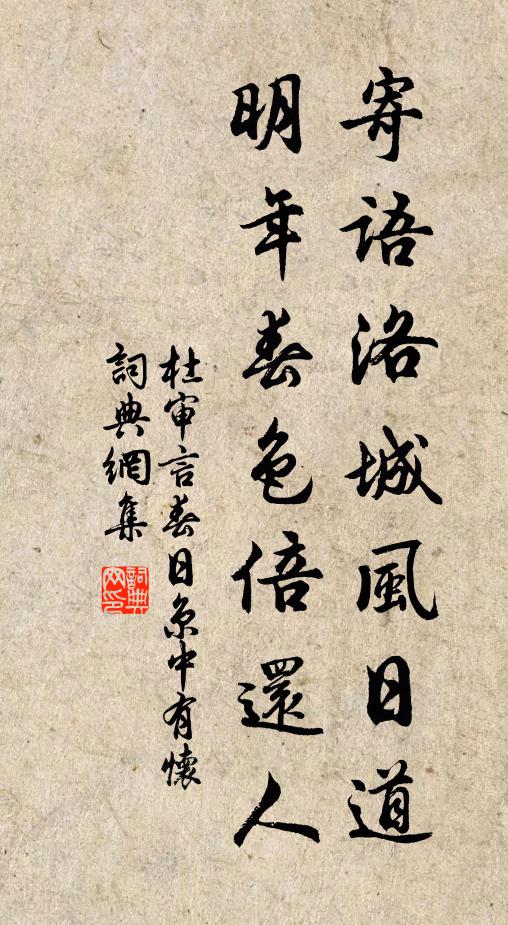 寄語洛城風日道
明年春色倍還人
杜审言春日京中有懷
詞典網集
詞典
网印